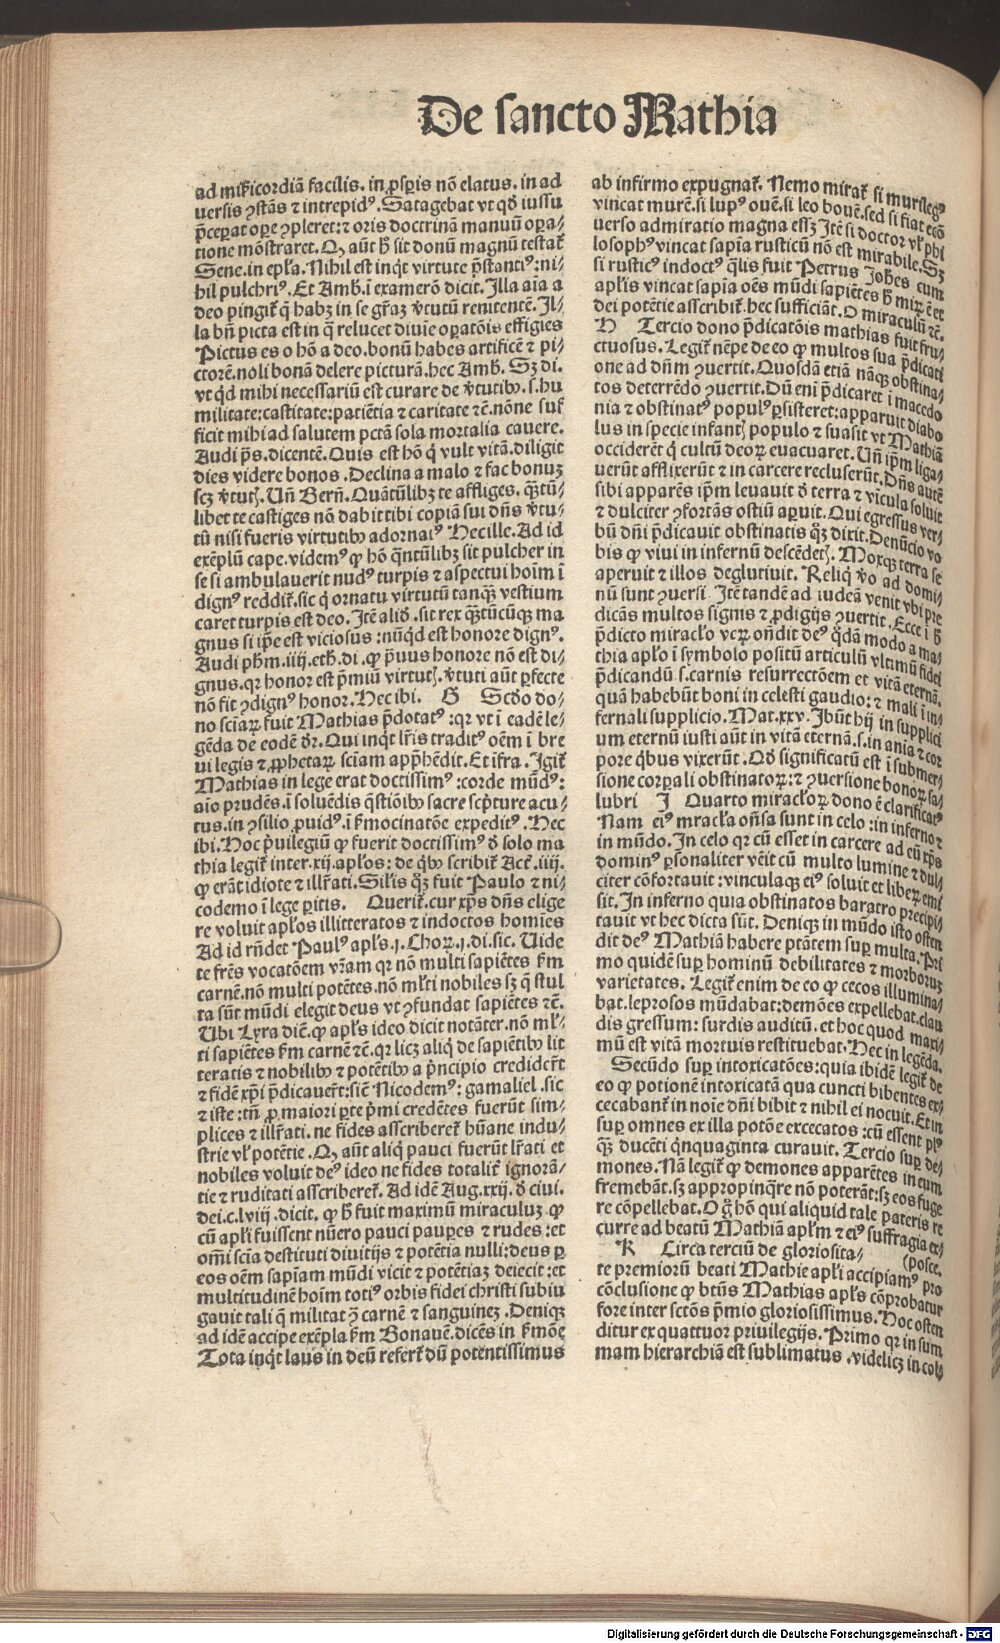 De sancto Mathia
ad mißicordiā facilis. in ꝓsꝑis nō elatus. in ad
uersis ꝯstās ⁊ intrepidꝰ. Satagebat vt qd̄ iussu
p̄ceꝑat oꝑe ꝯpleret: ⁊ oris doctrinā manuū oꝑa⸗
tione mōstraret. Q, aūt h̄ sit donū magnū testat᷑
Sene. in epl̓a. Nihil est inqͥt virtute p̄stantiꝰ: ni⸗
hil pulchriꝰ. Et Amb̄. ī examerō dicit. Illa aīa a
deo pingit᷑ q̄ habꝫ in se gr̄aꝫ v̓tutū renitentē. Il⸗
la bn̄ picta est in q̄ relucet diuīe oꝑatōis effigies
Pictus es o hō a deo. bonū habes artificē ⁊ pi⸗
ctorē. noli bonā delere picturā. hec Amb̄. Sꝫ di.
vt qͥd mihi necessariū est curare de v̓tutibꝰ. s. hu
militate: castitate: patiētia ⁊ caritate ⁊c̄. nōne suf
ficit mihi ad salutem pctā sola mortalia cauere.
Audi p̄s. dicentē. Quis est hō qͥ vult vitā. diligit
dies videre bonos. Declina a malo ⁊ fac bonuꝫ
scꝫ v̓tutꝭ. Un̄ Bern̄. Quātūlibꝫ te affliges. qͣꝫtū⸗
libet te castiges nō dabit tibi copiā sui dn̄s v̓tu⸗
tū nisi fueris virtutibꝰ adornatꝰ Hecille. Ad id
exēplū cape. videmꝰ ꝙ hō qͣntūlibꝫ sit pulcher in
se si ambulauerit nudꝰ turpis ⁊ aspectui hoīm ī
dignꝰ reddit᷑. sic qͥ ornatu virtutū tanqͣꝫ vestium
caret turpis est deo. Itē aliď. sit rex qͣꝫtūcūqꝫ ma
gnus si ip̄e est viciosus: nūqͥd est honore dignꝰ.
Audi ph̄m. iiij. eth̄. di. ꝙ p̄uus honore nō est di⸗
gnus. qꝛ honor est p̄miū virtutꝭ. v̓tuti aūt ꝑfecte
nō fit ꝯdignꝰ honor. Hec ibi. G Scďo do⸗
no sciaꝝ fuit Mathias p̄dotatꝰ: qꝛ vt ī eadē le⸗
gēda de eodē d̄r. Qui inqͥt lr̄is traditꝰ oēm ī bre
ui legis ⁊ ꝓphetaꝝ sciam app̄hēdit. Et īfra. Igit᷑
Mathias in lege erat doctissimꝰ: corde mūdꝰ:
aīo prudēs. ī soluēdis qōstiōibꝰ sacre scp̄ture acu⸗
tus. in ꝯsilio ꝓuidꝰ. ī ẜmocinatōe expeditꝰ. Hec
ibi. Hoc p̄uilegiū ꝙ fuerit doctissimꝰ ď solo ma
thia legit᷑ inter. xij. apl̓os: de qͥbꝰ scribit᷑ Act̄. iiij.
ꝙ erāt idiote ⁊ illr̄ati. Sil̓is qͦꝫ fuit Paulo ⁊ ni⸗
codemo ī lege ꝑitis. Querit᷑. cur xp̄s dn̄s elige
re voluit apl̓os illitteratos ⁊ indoctos homīes
Ad id rn̄det Paulꝰ apl̓s. j. Choꝝ. j. di. sic. Uide
te fr̄es vocatōem vr̄am qꝛ nō multi sapiētes ẜm
carnē. nō multi potētes. nō ml̓ti nobiles sꝫ q̄ stul
ta sūt mūdi elegit deus vt ꝯfundat sapiētes ⁊c̄.
Ubi Lyra diē. ꝙ apl̓s ideo dicit notāter. nō ml̓⸗
ti sapiētes ẜm carnē ⁊c̄. qꝛ licꝫ aliqͥ de sapiētibꝰ lit
teratis ⁊ nobilibꝰ ⁊ potētibꝰ a p̄ncipio crediderūt
⁊ fidē xp̄i p̄dicauert᷑: sic̄ Nicodemꝰ: gamaliel. sic
⁊ iste: tn̄ ꝓ maiori ꝑte p̄mi credētes fuerūt sim⸗
plices ⁊ illr̄ati. ne fides asscriberet᷑ hūane indu⸗
strie vl̓ potētie. Q, aūt aliqͥ pauci fuerūt lr̄ati et
nobiles voluit deꝰ ideo ne fides totalit᷑ ignorā⸗
tie ⁊ ruditati asscriberet᷑. Ad idē Aug. xxij. ď ciui.
dei. c. lviij. dicit. ꝙ h̄ fuit maximū miraculuꝫ ꝙ
cū apl̓i fuissent nūero pauci pauꝑes ⁊ rudes: et
om̄i scīa destituti diuitijs ⁊ potētia nulli: deus ꝑ
eos oēm sapīam mūdi vicit ⁊ potētiaꝫ deiecit: et
multitudinē hoīm totiꝰ orbis fidei christi subiu
gauit tali qͥ militat ꝯ̄ carnē ⁊ sanguinez. Deniqꝫ
ad idē accipe exēpla ẜm Bonauē. dicēs in ẜmōe
Tota inqͥt laus in deū refert᷑ dū potentissimus
ab infirmo expugnat᷑. Nemo mirat᷑ si murilegꝰ
vincat murē. si lupꝰ ouē. si leo bouē. sed si fiat ecō
uerso admiratio magna essꝫ Itē si doctor vl̓ phi
losophꝰ vincat sapīa rusticū nō est mirabile. Sꝫ
si rusticꝰ indoctꝰ qͣlis fuit Petrus Joh̄es cum
apl̓is vincat sapīa oēs mūdi sapiētes h̄ miꝝ ē et
dei potētie asscribit᷑. hec sufficiāt. O miraculū ⁊c̄.
H Tercio dono p̄dicatōis mathias fuit fru⸗
ctuosus. Legit᷑ nēpe de eo ꝙ multos sua p̄dicati
one ad dn̄m ꝯuertit. Quosdā etiā nāqꝫ obstina⸗
tos deterrēdo ꝯuertit. Dū eni p̄dicaret ī macedo
nia ⁊ obstinatꝰ populꝰ ꝑsisteret: apparuit diabo
lus in specie infantꝭ populo ⁊ suasit vt Mathiā
occiderēt qͥ cultū deoꝝ euacuaret. Un̄ ip̄m liga⸗
uerūt afflixerūt ⁊ in carcere recluserūt. Dn̄s autē
sibi apparēs ip̄m leuauit ď terra ⁊ vīcula soluit
⁊ dulciter ꝯfortās ostiū aꝑuit. Qui egressus ver⸗
bū dn̄i p̄dicauit obstinatis qͦꝫ dixit. Denūcio vo
bis ꝙ viui in infernū descēdetꝭ. Moxqꝫ terra se
aperuit ⁊ illos deglutiuit. Reliqͥ v̓o ad domi⸗
nū sunt ꝯuersi Itē tandē ad iudeā venit vbi pre
dicās multos signis ⁊ ꝓdigijs ꝯuertit. Ecce ī h̄
p̄dicto miracl̓o veꝝ oñdit deꝰ qͦdā modo a ma⸗
thia apl̓o ī symbolo positū articulū vltimū fidei
p̄dicandū s. carnis resurrectōem et vitā eternā.
quā habebūt boni in celesti gaudio: ⁊ mali ī in⸗
fernali supplicio. Mat. xxv. Ibūt hij in supplici
um eternū iusti aūt in vitā eternā. s. in aīa ⁊ cor
pore qͥbus vixerūt. Qd̄ significatū est ī submer⸗
sione corꝑali obstinatoꝝ: ⁊ ꝯuersione bonoꝝ sa⸗
lubri J Quarto miracl̓oꝝ dono ē clarificatꝰ
Nam eiꝰ miracl̓a oñsa sunt in celo: in inferno ⁊
in mūdo. In celo qꝛ cū esset in carcere ad eū xp̄s
dominꝰ ꝑsonaliter vēit cū multo lumine ⁊ dul⸗
citer cōfortauit: vinculaqꝫ eiꝰ soluit et liberū emi
sit. In inferno quia obstinatos baratro precipi⸗
tauit vt hec dicta sūt. Deniqꝫ in mūdo isto osten
dit deꝰ Mathiā habere ptātem suꝑ multa. Pri
mo quidē suꝑ hominū debilitates ⁊ morboruꝫ
varietates. Legit᷑ enim de eo ꝙ cecos illumina⸗
bat. leprosos mūdabat: demōes expellebat. clau
dis gressum: surdis auditū. et hoc quod maxi⸗
mū est vitā mortuis restituebat. Hec in legēda.
Secūdo suꝑ intoxicatōes: quia ibidē legit᷑ de
eo ꝙ potionē intoxicatā qua cuncti bibentes ex⸗
cecabant᷑ in noīe dn̄i bibit ⁊ nihil ei nocuit. Et in
suꝑ omnes ex illa potōe excecatos: cū essent plꝰ
qͣꝫ ducēti qͥnquaginta curauit. Tercio suꝑ de⸗
mones. Nā legit᷑ ꝙ demones apparētes in eum
fremebāt. sꝫ appropinqͣre nō poterāt: sꝫ eos fuge
re cōpellebat. O gͦ hō qui aliquid tale pateris re
curre ad beatū Mathiā apl̓m ⁊ eiꝰ suffragia ex⸗
(posce.
K Circa terciū de gloriosita⸗
te premiorū beati Mathie apl̓i accipiamꝰ pro
cōclusione ꝙ btūs Mathias apl̓s cōprobatur
fore inter sctōs p̄mio gloriosissimus. Hoc osten
ditur ex quattuor priuilegijs. Primo qꝛ in sum
mam hierarchiā est sublimatus. videlicꝫ in col⸗
Digitalisierung gefördert durch die Deutsche Forschungsgemeinschaft - DFG